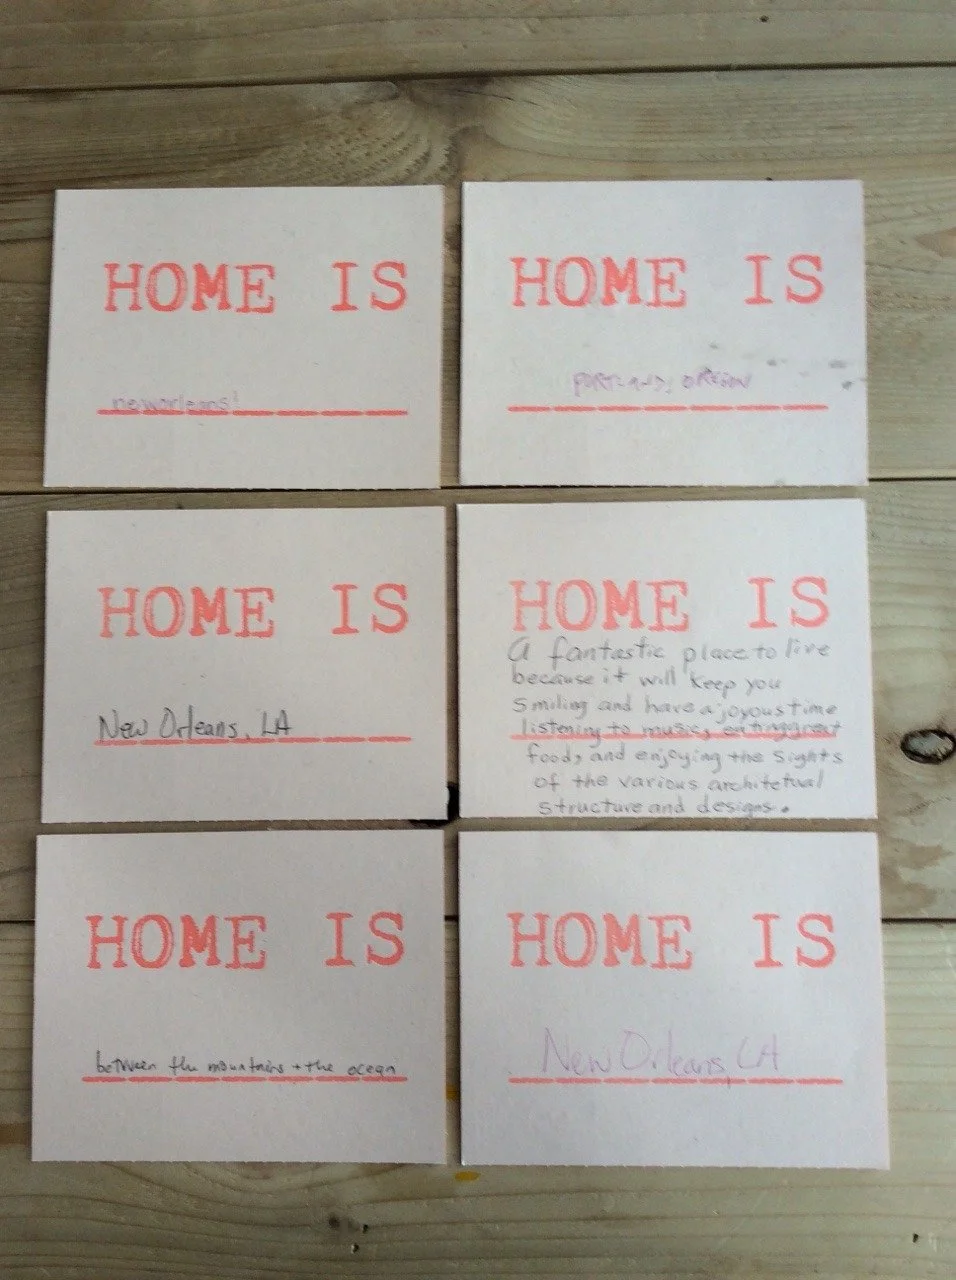 HOME IS
neworleans!
HOME IS
PORTLAND, OREGON
HOME IS
New Orleans, LA
HOME IS
A fantastic place to live
because it will keep you
smiling and have a joyous time
listening to music, eating great
food, and enjoying the sights
of the various architetual
structure and designs.
HOME IS
between the mountains + the ocean
HOME IS
New Orleans, LA